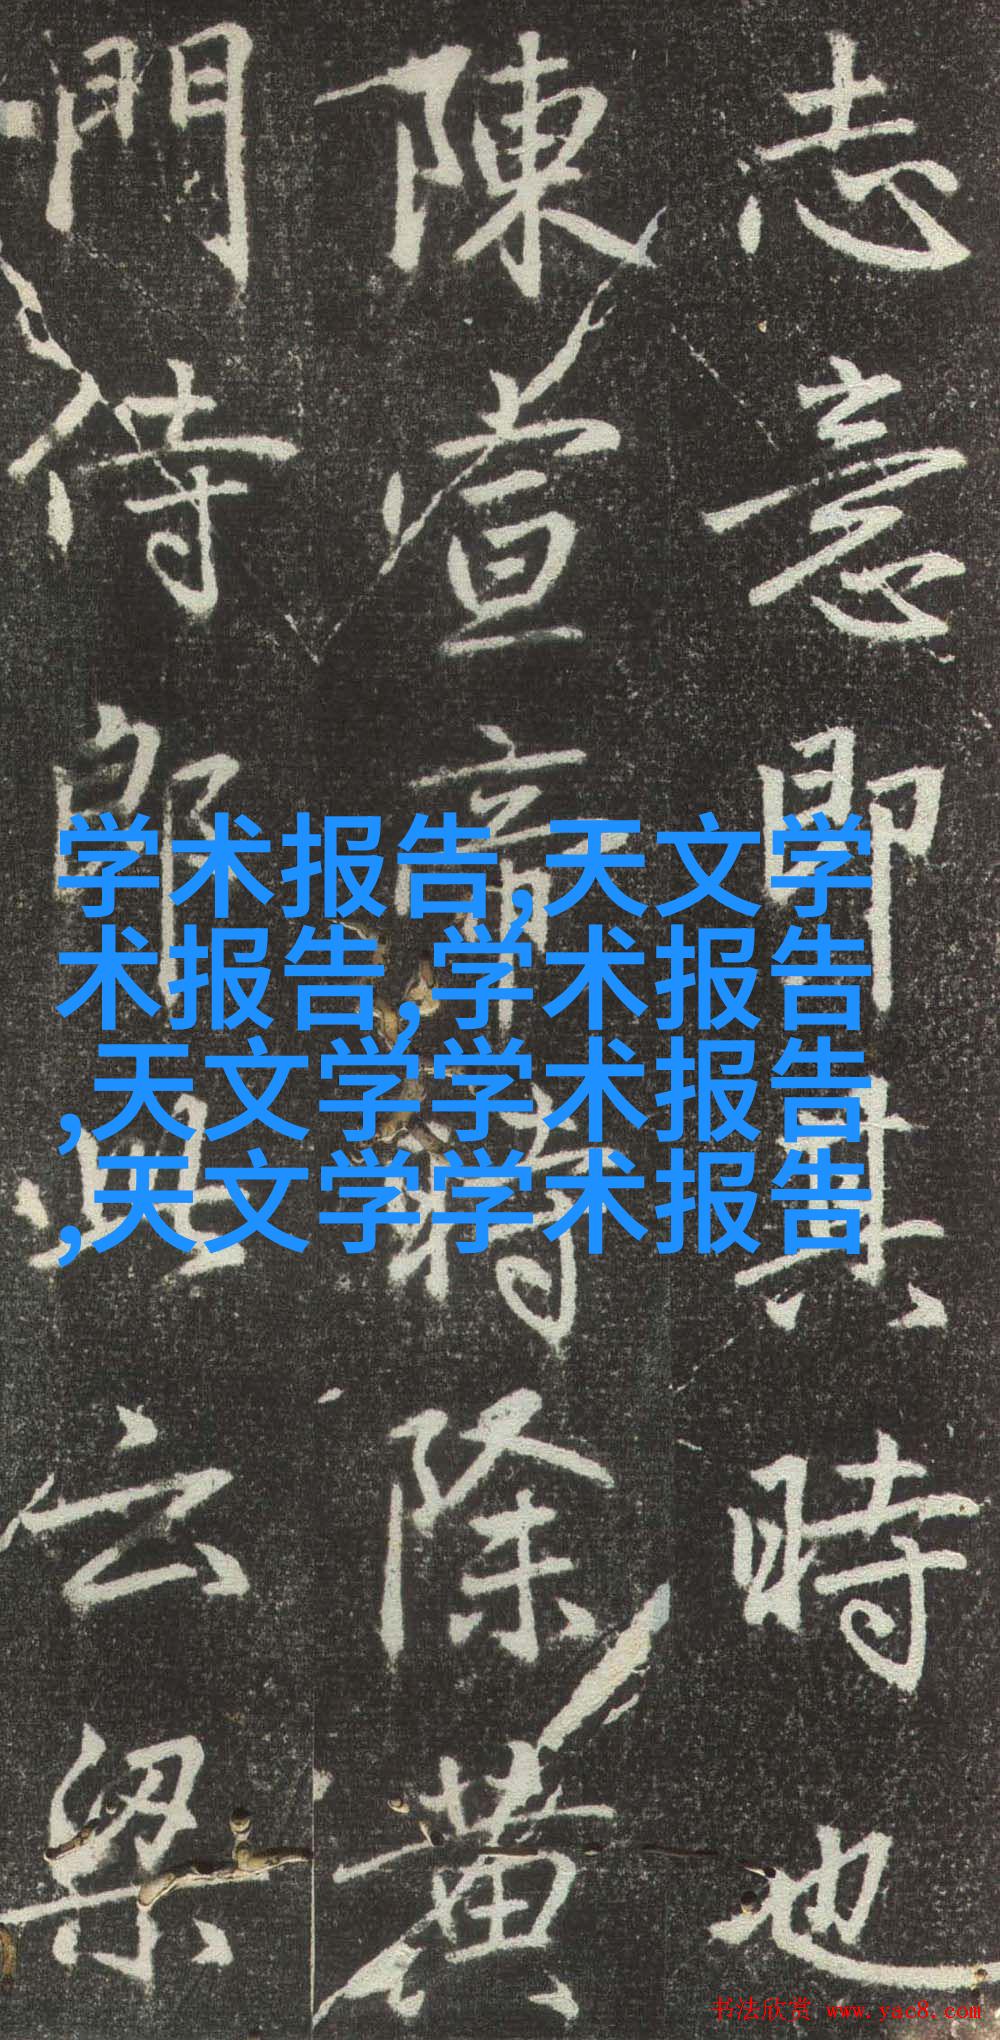 志意即其時也
陳宣帝時除黄
門侍郎興公梁
学术报告,天文学
术报告,学术报告
,天文学学术报告
,天文学学术报告
书法欣赏 www.yac8.com